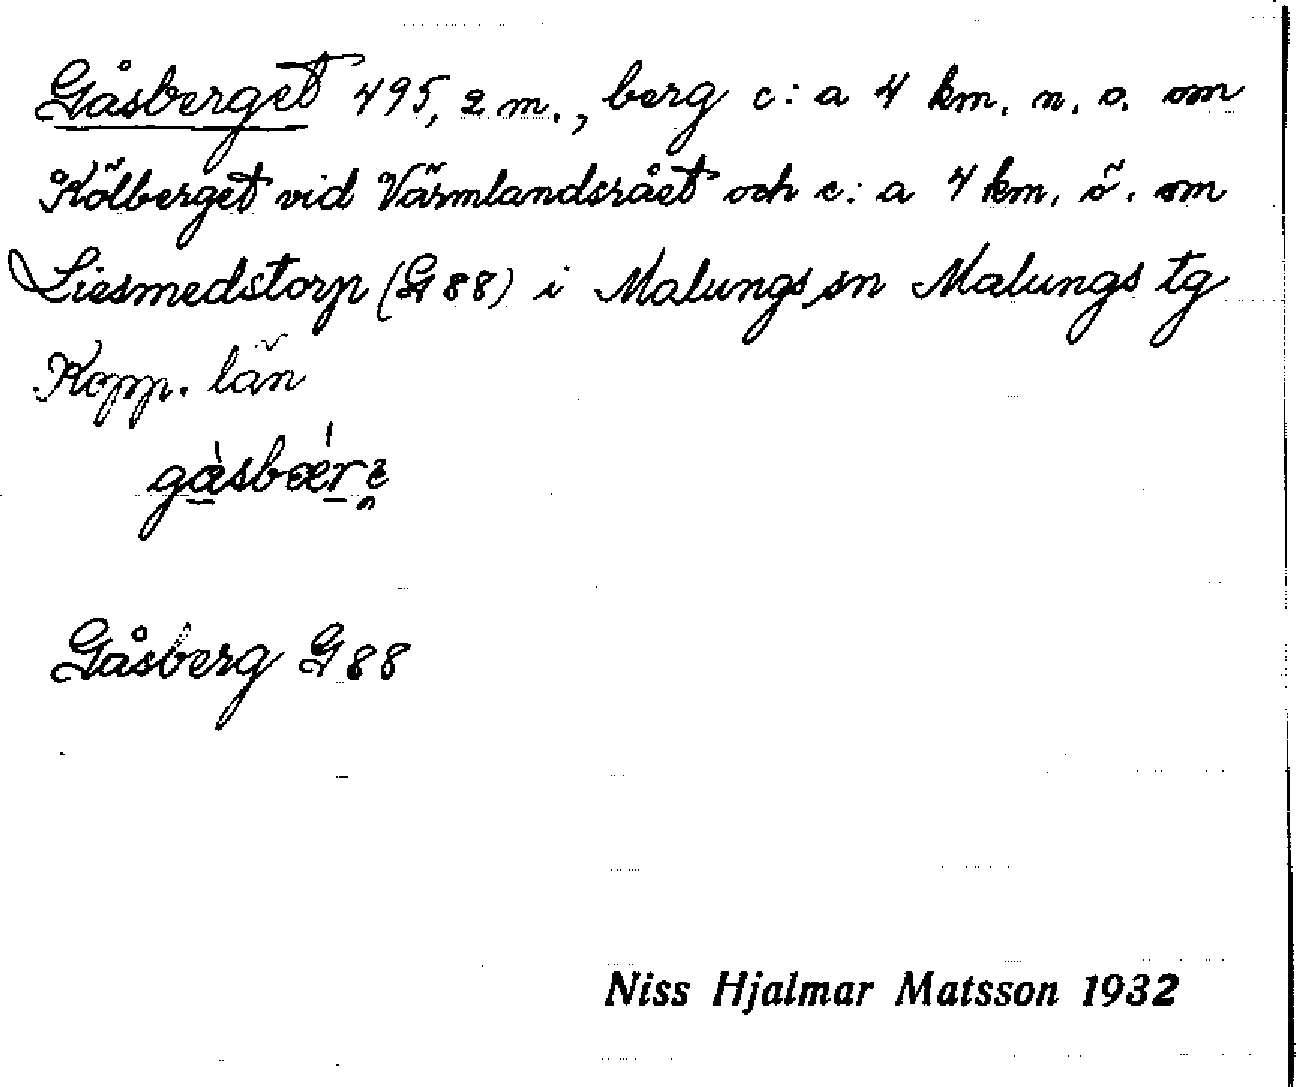 Gåsberget 495,2 m., berg c:a 4 km. n. o. om
Kölberget vid Värmlandsrået och c:a 4 km. ö. om
Liesmedstorp (G 88) i Malungs sn Malungs tg
Kopp. län
Gåsberg G 88
Niss Hjalmar Matsson 1932